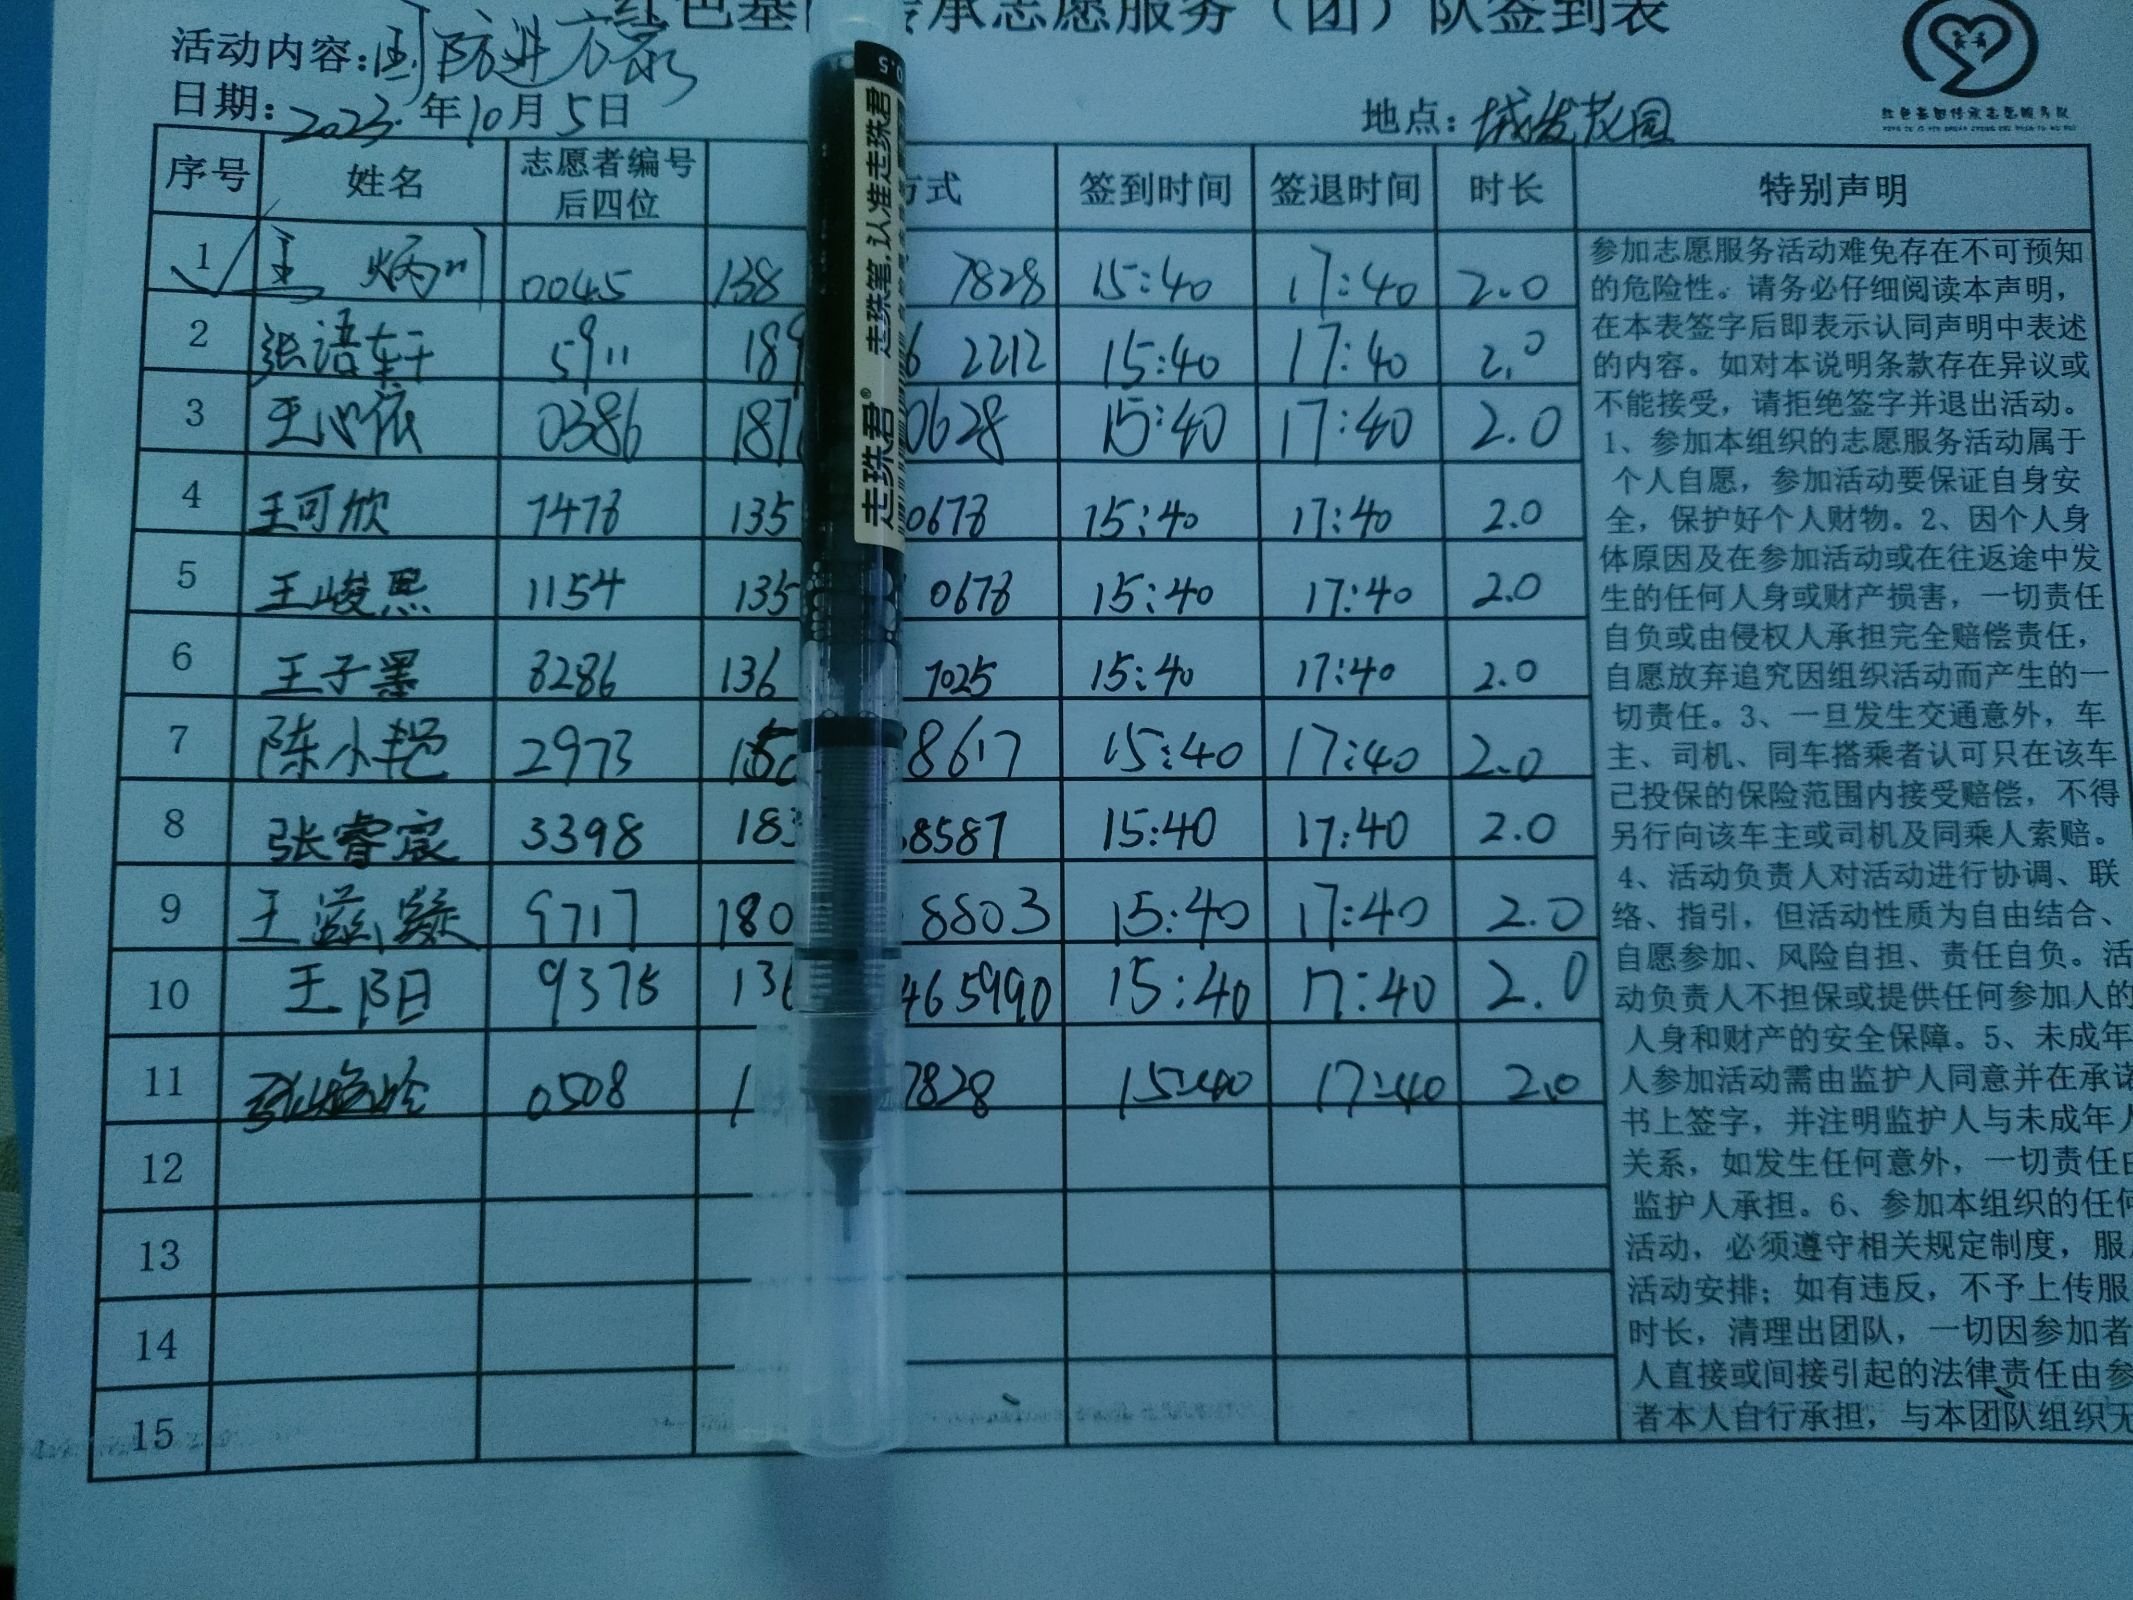 红色基 传承志愿服务（团）队签到表
活动内容：国防进万家
日期：2023年10月5日 地点：城发花园
红色基因传承志愿服务队
序号 姓名 志愿者编号后四位 方式 签到时间 签退时间 时长 特别声明
1 王炳川 0045 138 7828 15:40 17:40 2.0
2 张语轩 5911 189 6 2212 15:40 17:40 2.0
3 王心依 0386 187 0628 15:40 17:40 2.0
4 王可欣 7478 135 0678 15:40 17:40 2.0
5 王峻思 1154 135 0678 15:40 17:40 2.0
6 王子墨 8286 136 7025 15:40 17:40 2.0
7 陈小艳 2973 150 8617 15:40 17:40 2.0
8 张睿宸 3398 183 8587 15:40 17:40 2.0
9 王滋凝 9717 180 8803 15:40 17:40 2.0
10 王阳 9378 136 465990 15:40 17:40 2.0
11 0508 1 7828 15:40 17:40 2.0
12
13
14
15
参加志愿服务活动难免存在不可预知
的危险性。请务必仔细阅读本声明，
在本表签字后即表示认同声明中表述
的内容。如对本说明条款存在异议或
不能接受，请拒绝签字并退出活动。
1、参加本组织的志愿服务活动属于
个人自愿，参加活动要保证自身安
全，保护好个人财物。2、因个人身
体原因及在参加活动或在往返途中发
生的任何人身或财产损害，一切责任
自负或由侵权人承担完全赔偿责任，
自愿放弃追究因组织活动而产生的一
切责任。3、一旦发生交通意外，车
主、司机、同车搭乘者认可只在该车
己投保的保险范围内接受赔偿，不得
另行向该车主或司机及同乘人索赔。
4、活动负责人对活动进行协调、联
络、指引，但活动性质为自由结合、
自愿参加、风险自担、责任自负。活
动负责人不担保或提供任何参加人的
人身和财产的安全保障。5、未成年
人参加活动需由监护人同意并在承诺
书上签字，并注明监护人与未成年人
关系，如发生任何意外，一切责任由
监护人承担。6、参加本组织的任何
活动，必须遵守相关规定制度，服从
活动安排；如有违反，不予上传服
时长，清理出团队，一切因参加者
人直接或间接引起的法律责任由参
者本人自行承担，与本团队组织无
0.5
走珠君® 走珠笔，认准走珠君